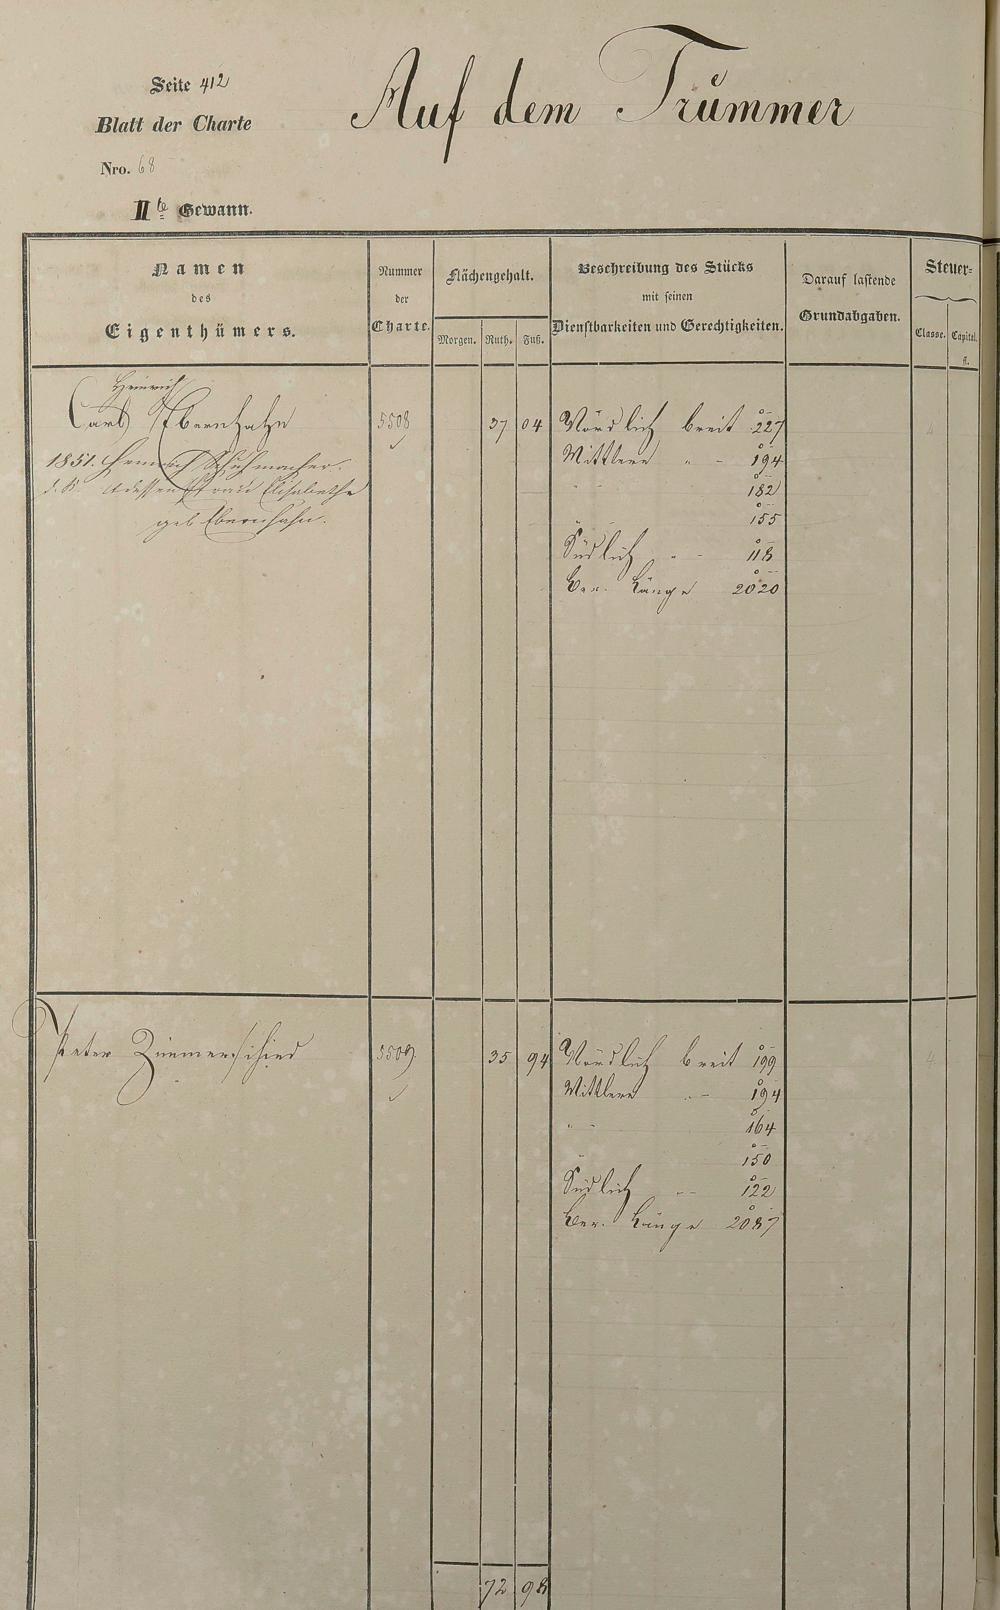 Seite 412
Auf dem Trümmer
Blatt der Charte
Nro. 68
IIte Gewann.
Namen
des
Eigenthümers.
Nummer
der
Charte.
Flächengehalt.
Morgen. Ruth. Fuß.
Beschreibung des Stücks
mit seinen
Dienstbarkeiten und Gerechtigkeiten.
Darauf lastende
Grundabgaben.
Steuer-
Classe. Capital.
fl.
Heinrich
Carl Ebernhahn 5508 37 04 Nördlich breit 227 4
1851. Heinrich Schuhmacher. Mittlere " - 194
Elisabethe " - 182
geb Ebernhahn. " 155
Südlich " - 118
Ber. Länge 2020
Peter Zimmerschied 5509 35 94 Nördlich breit 199 4
Mittlere " - 194
" - 164
" 150
Südlich " - 122
Ber. Länge 2087
72 98